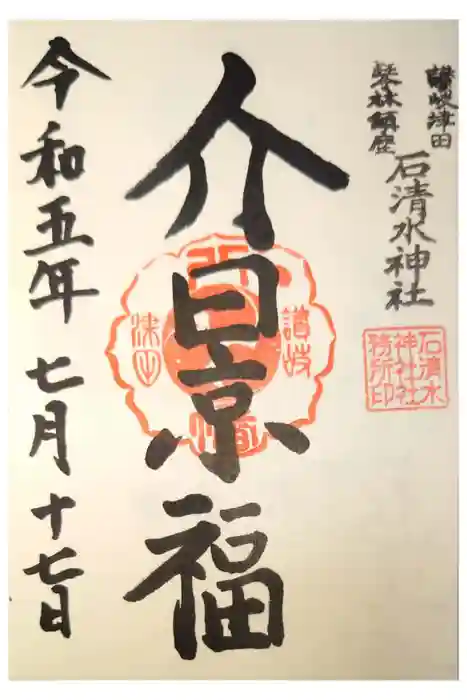 讃岐津田
琴林鎮座
石清水神社
石清水
神社社
務所印
介景福
讃岐
津田
令和五年七月十七日